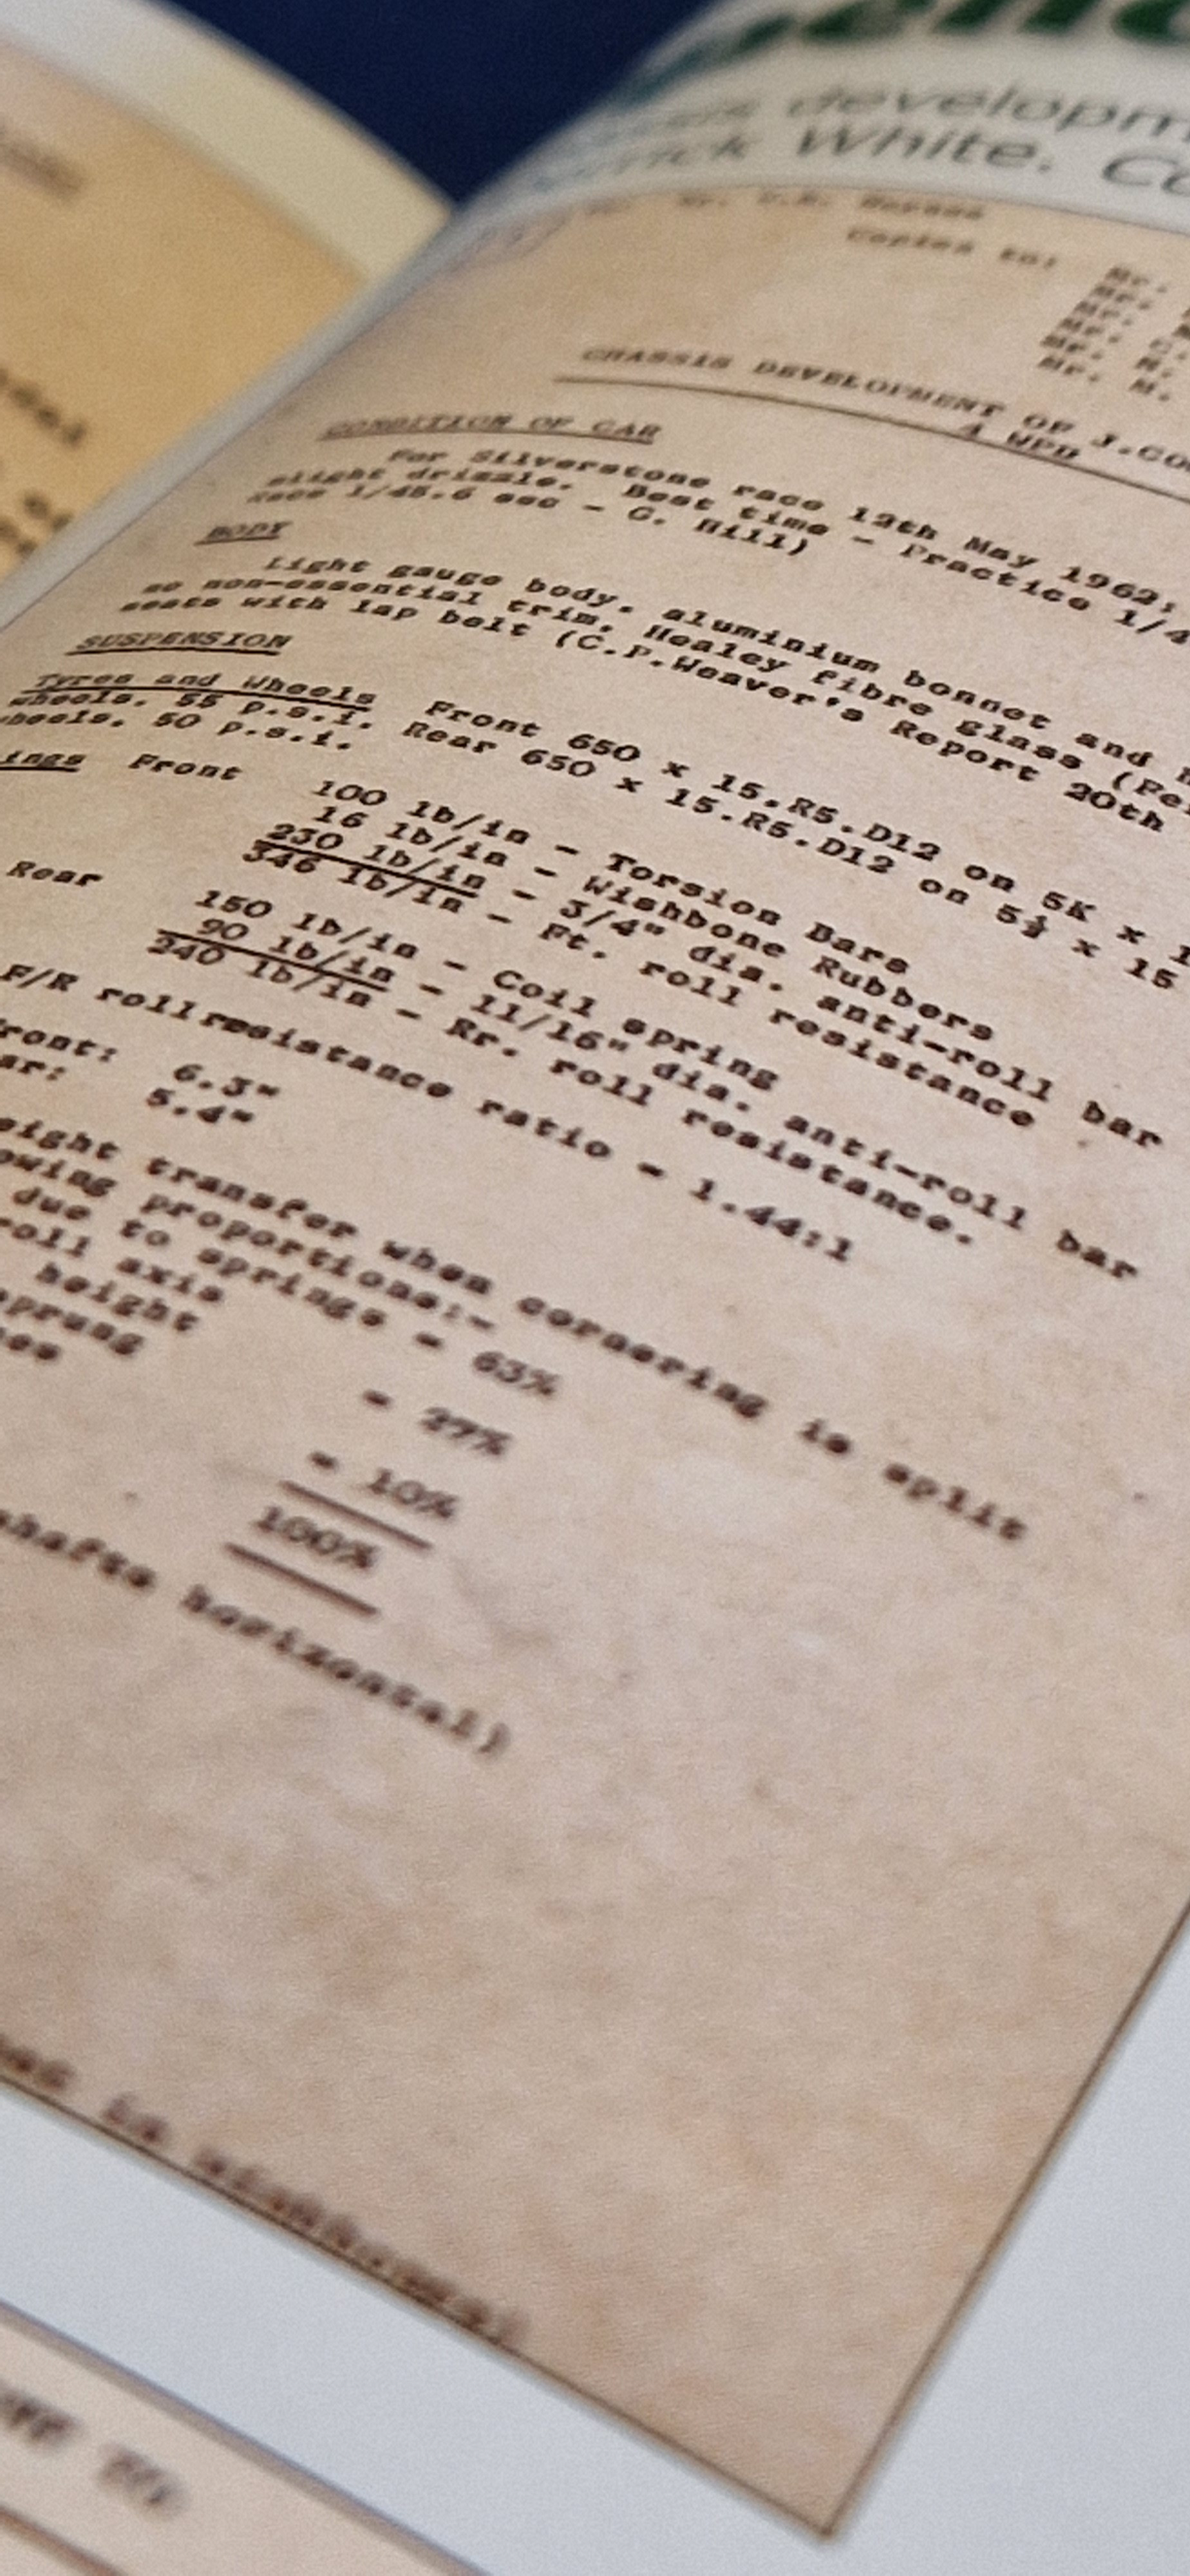 developm
White. Co
Copies to: Mr.
Mr.
Mr.
Mr. C.
Mr. H.
Mr. M.
CHASSIS DEVELOPMENT OF J.COO
4 WPD
CONDITION OF CAR
For Silverstone race 12th May 1962;
slight drizzle. Best time - Practice 1/4
Race 1/45.6 sec - G. Hill)
BODY
Light gauge body, aluminium bonnet and
no non-essential trim, Healey fibre glass (Per
seats with lap belt (C.P.Weaver's Report 20th
SUSPENSION
Tyres and Wheels Front 650 x 15.R5.D12 on 5K x 1
wheels. 55 p.s.i. Rear 650 x 15.R5.D12 on 5½ x 15
heels. 50 p.s.i.
ings Front 100 lb/in - Torsion Bars
16 lb/in - Wishbone Rubbers
230 lb/in - 3/4" dia. anti-roll bar
346 lb/in - Ft. roll resistance
Rear 150 lb/in - Coil spring
90 lb/in - 11/16" dia. anti-roll bar
240 lb/in - Rr. roll resistance.
F/R roll resistance ratio = 1.44:1
ront: 6.3"
ar: 5.4"
eight transfer when cornering is split
owing proportions:-
due to springs = 63%
roll axis
height = 27%
sprung
es = 10%
100%
shafts horizontal)